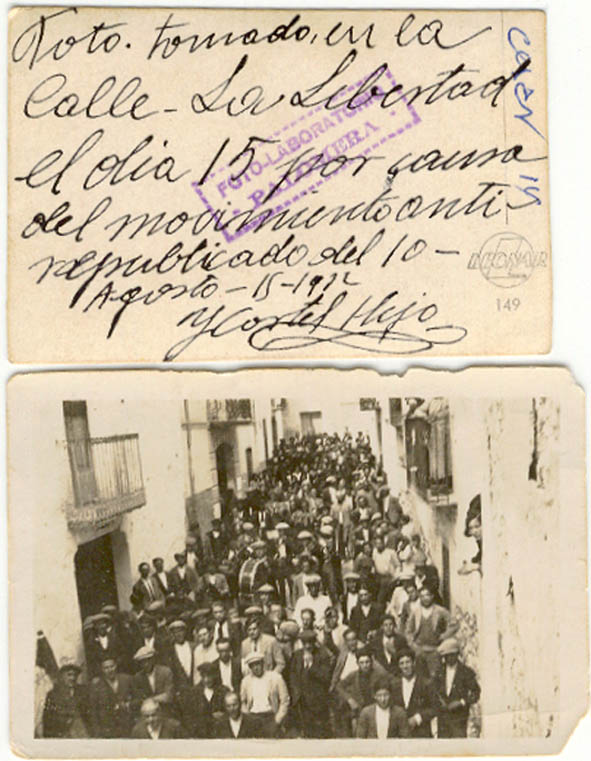 Foto. tomado, en la
Calle - La Libertad
el dia 15 por causa
del movimiento anti-
republicado del 10 -
Agosto - 15 - 1932
Y Costel Hijo
FOTO-LABORATORIO
PALOMERA
LEONAR
149